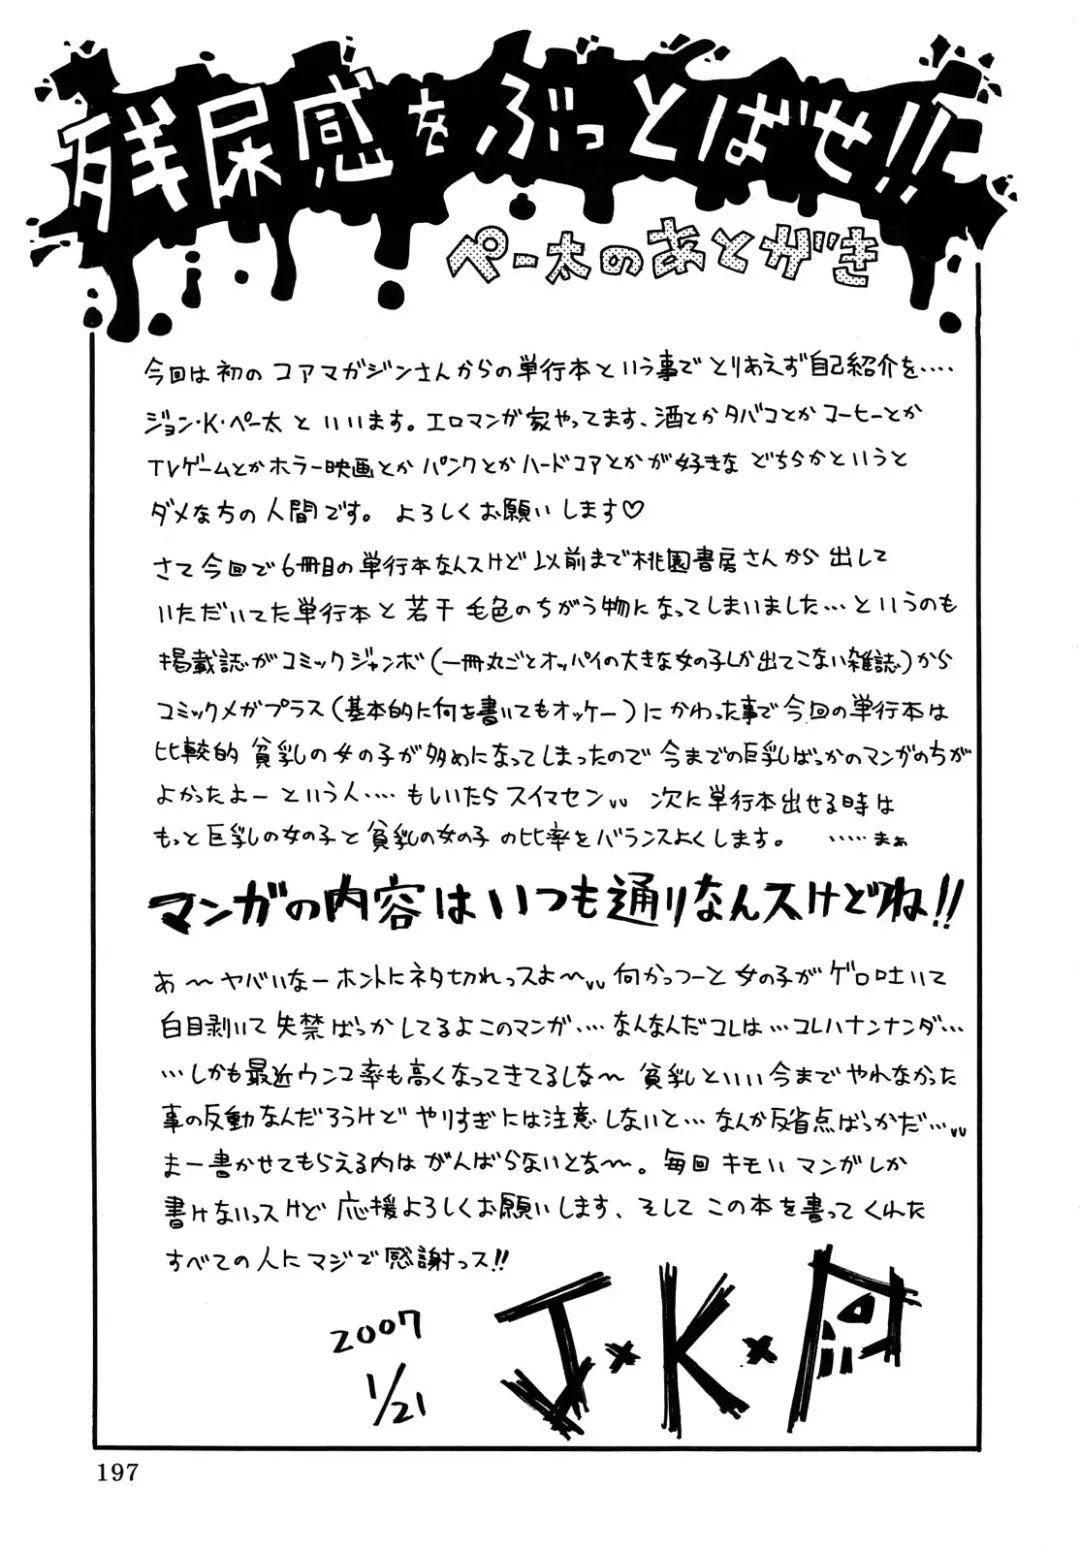 残尿感をぶっとばせ!!
ペー太のあとがき
今回は初のコアマガジンさんからの単行本という事でとりあえず自己紹介を‥‥
ジョン・K・ペー太といいます。エロマンガ家やってます、酒とかタバコとかコーヒーとか
TVゲームとかホラー映画とかパンクとかハードコアとかが好きなどちらかというと
ダメな方の人間です。よろしくお願いします♡
さて今回で6冊目の単行本なんスけど以前まで桃園書房さんから出して
いただいてた単行本と若干毛色のちがう物になってしまいました…というのも
掲載誌がコミックジャンボ(一冊丸ごとオッパイの大きな女の子しか出てこない雑誌)から
コミックメガプラス(基本的に何を書いてもオッケー)にかわった事で今回の単行本は
比較的貧乳の女の子が多めになってしまったので今までの巨乳ばっかのマンガのちが
よかったよーという人‥‥もしいたらスイマセン 次に単行本出せる時は
もっと巨乳の女の子と貧乳の女の子の比率をバランスよくします。 ‥‥‥まぁ
マンガの内容はいつも通りなんスけどね!!
あ〜ヤバいなーホントにネタ切れっスよ〜 何かっつーと女の子がゲロ吐いて
白目剥いて失禁ばっかしてるよこのマンガ‥‥なんなんだコレは…コレハナンナンダ…
…しかも最近ウンコ率も高くなってきてるしな〜 貧乳といい今までやれなかった
事の反動なんだろうけどやりすぎには注意しないと…なんか反省点ばっかだ…
まー書かせてもらえる内はがんばらないとな〜。毎回キモいマンガしか
書けないっスけど応援よろしくお願いします、そしてこの本を書ってくれた
すべての人にマジで感謝っス!!
2007
1/21
J×K×P
197